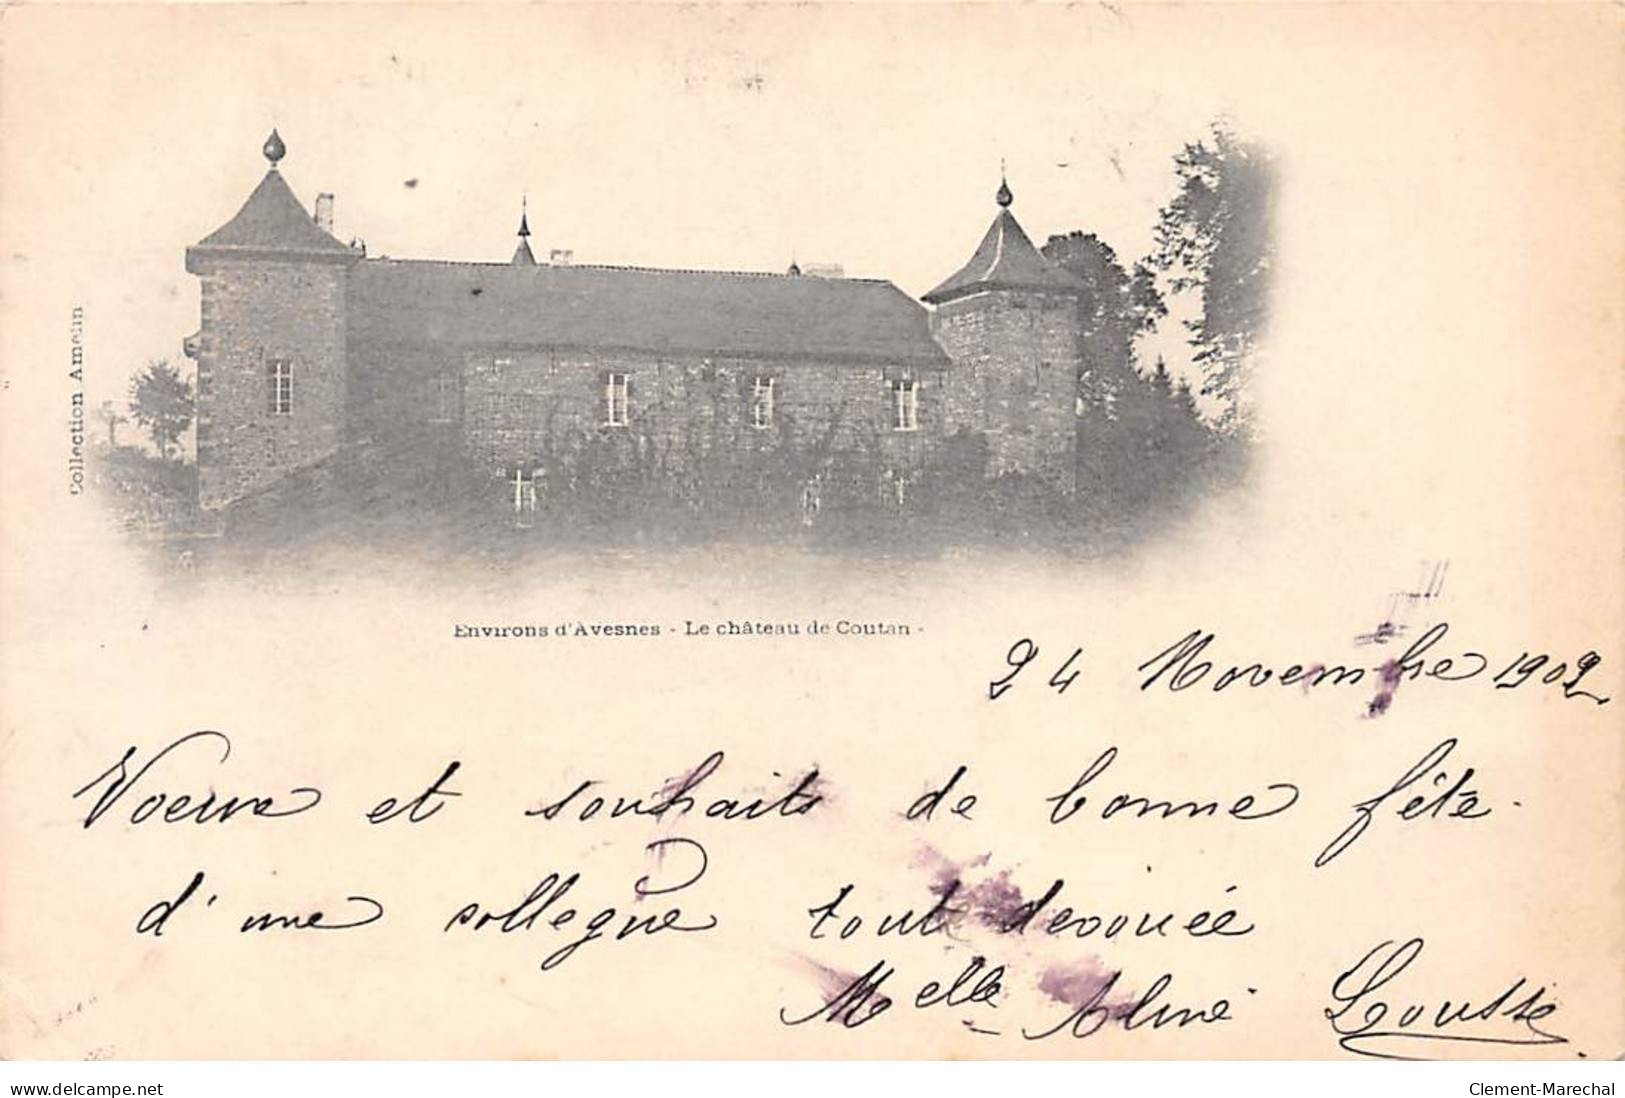 Collection Amelin
Environs d'Avesnes - Le château de Coutan -
24 Novembre 1902
Voeux et souhaits de bonne fête.
d'une collègue tout devouée
Melle Aline Lousse
www.delcampe.net
Clement-Marechal